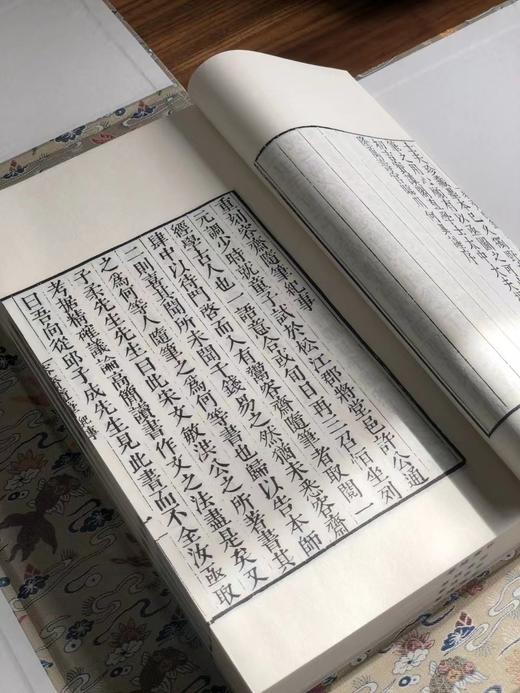 重刻容齋隨筆紀事
元調少時就童子試於松江郡將堂邑許公通
經學古人也一語意合或旬日再三召宿坐一列
肆中以待門啓而入有鬻容齋隨筆者取閱一
二則喜其聞所未聞千錢易之然猶未悉容齋
之為何等人隨筆之為何等書也歸以告本師
子柔先生先生曰此宋文敏洪公之所著書其
考據精確議論高簡讀書作文之法盡是矣又
曰吾向從邱子成先生見此書而不全汝亟取
容齋隨筆紀事 一